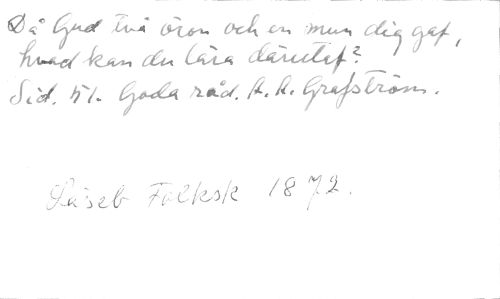 Då Gud två öron och en mun dig gaf,
hvad kan du lära därutaf?
Sid. 51. Goda råd. A. A. Grafström.
Läseb Folksk 1872.